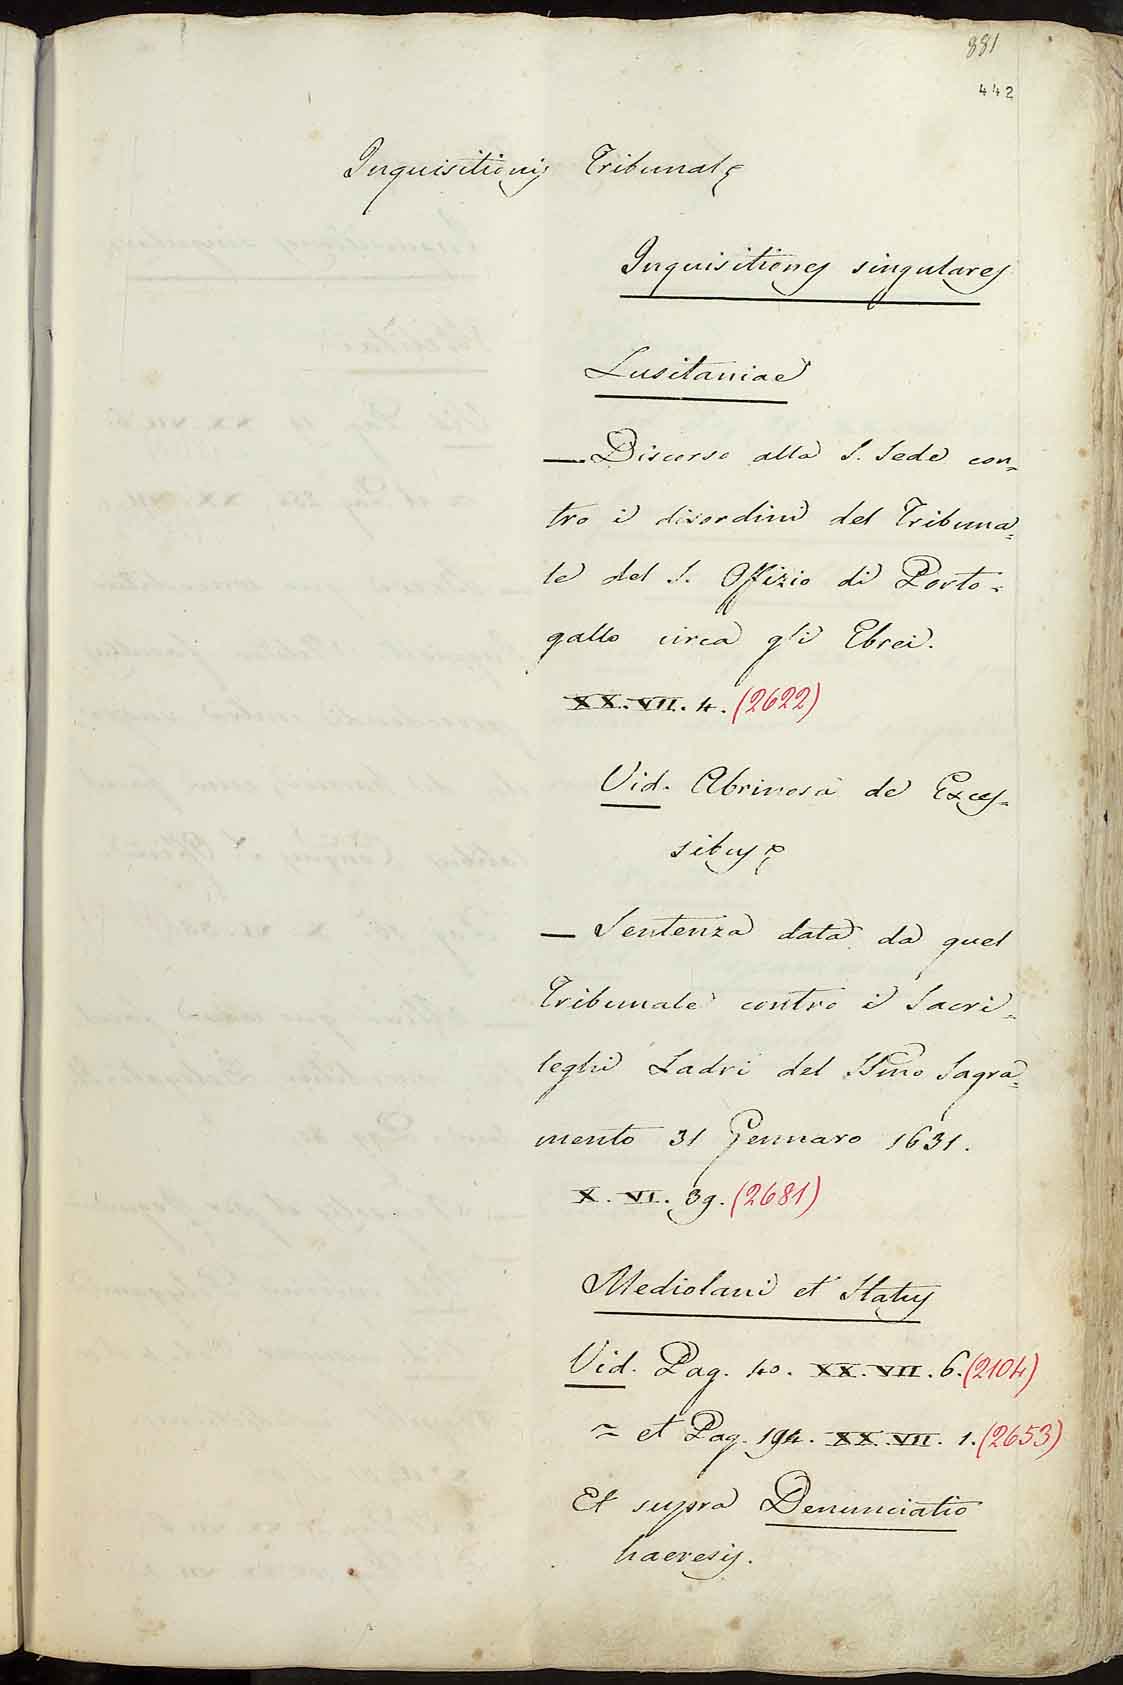 881
442
Inquisitionis Tribunal
Inquisitiones singulares
Lusitaniae
— Discorso alla S. Sede con=
tro i disordini del Tribuna=
le del S. Offizio di Porto=
gallo circa gli Ebrei.
XX. VII. 4. (2622)
Vid. Abrinosa de Exces=
sibus
— Sentenza data da quel
Tribunale contro i Sacri=
leghi Ladri del SSmo Sagra=
mento 31 Gennaro 1631.
X. VI. 39. (2681)
Mediolani et Status
Vid. Pag. 40. XX. VII. 6. (2104)
~ et Pag. 194. XX. VII. 1. (2653)
Et supra Denunciatio
haeresis.